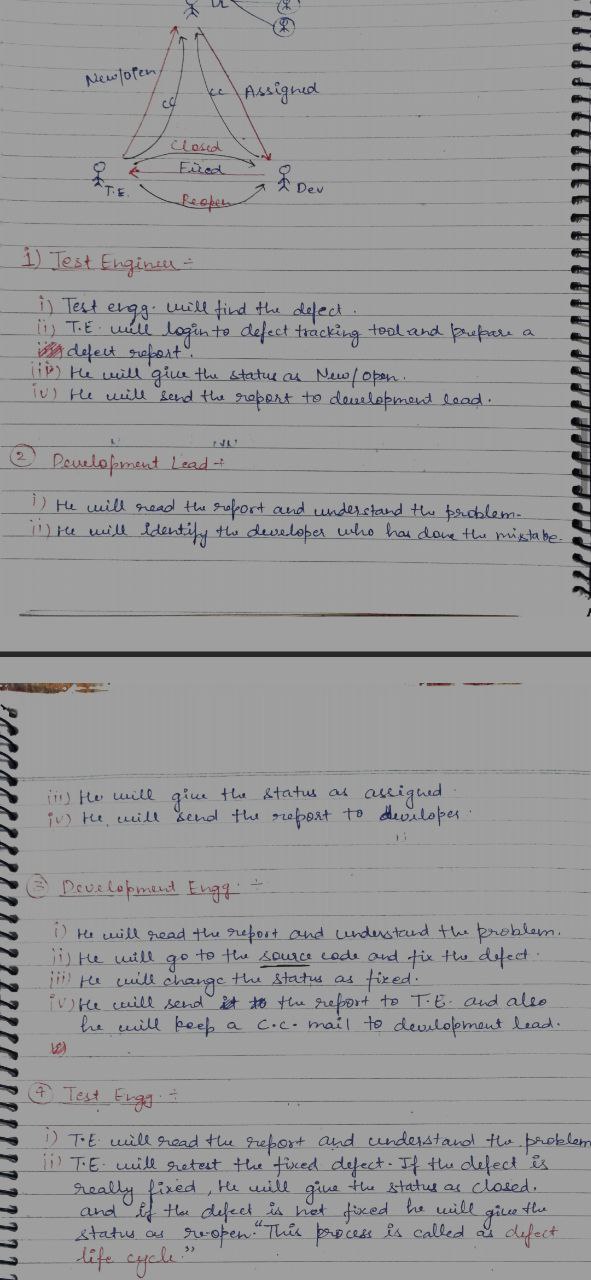 New/open
cc
cc
Assigned
Closed
Fixed
T.E.
Dev
Reopen
1) Test Engineer :-
i) Test engg. will find the defect.
ii) T.E. will login to defect tracking tool and prepare a
defect report.
iii) He will give the status as New/open.
iv) He will send the report to development lead.
2 Development Lead :-
i) He will read the report and understand the problem.
ii) He will identify the developer who has done the mistake.
iii) He will give the status as assigned.
iv) He will send the report to developer.
3 Development Engg. :-
i) He will read the report and understand the problem.
ii) He will go to the source code and fix the defect.
iii) He will change the status as fixed.
iv) He will send the report to T.E. and also
he will keep a C.C. mail to development lead.
4 Test Engg. :-
i) T.E. will read the report and understand the problem
ii) T.E. will retest the fixed defect. If the defect is
really fixed, He will give the status as closed.
and if the defect is not fixed he will give the
status as re-open. "This process is called as defect
life cycle."